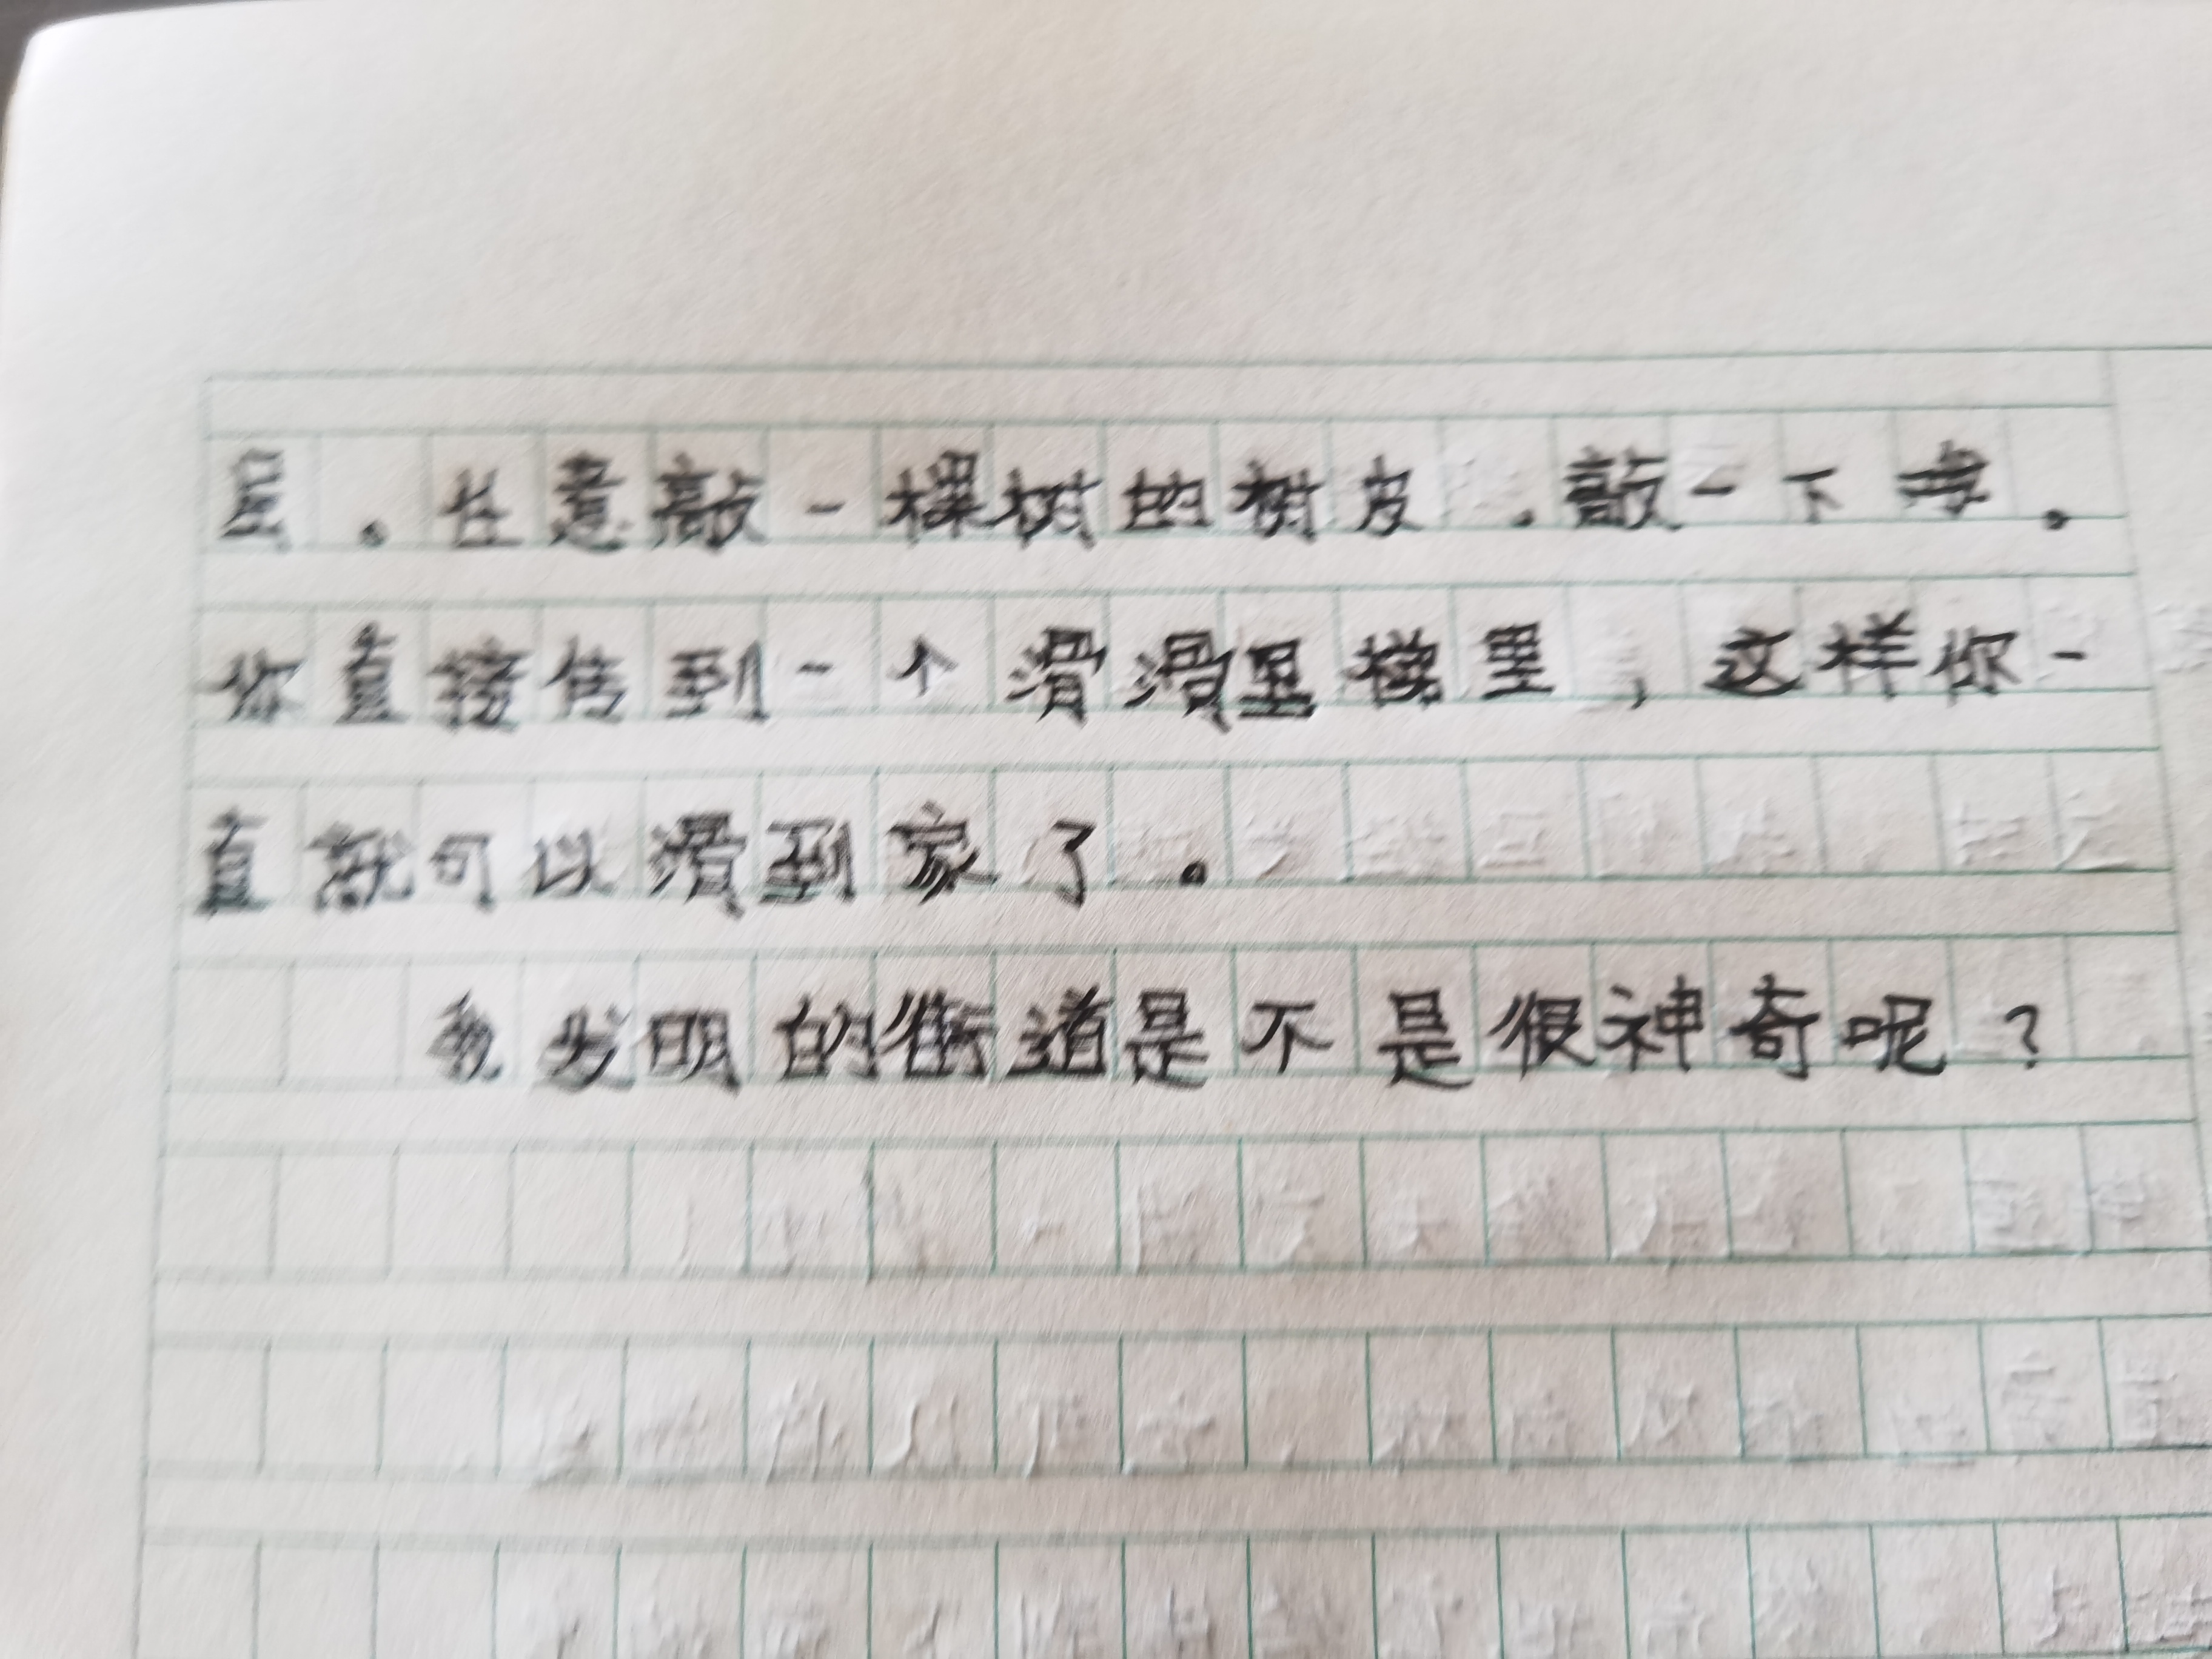 。任意敲一棵树的树皮，敲一下
你直接传到一个滑滑里梯里，这样你一
直就可以滑到家了。
我发明的街道是不是很神奇呢？